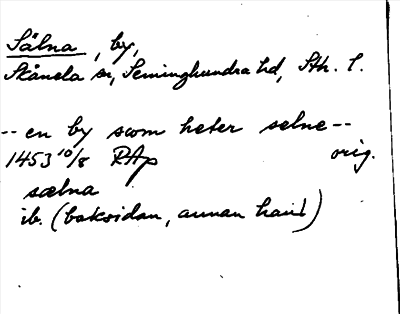 Sälna, by,
Skånela sn, Seminghundra hd, Sth. l.
-- en by swm heter selne --
1453 10/8 RAp orig.
sælna
ib. (baksidan, annan hand)